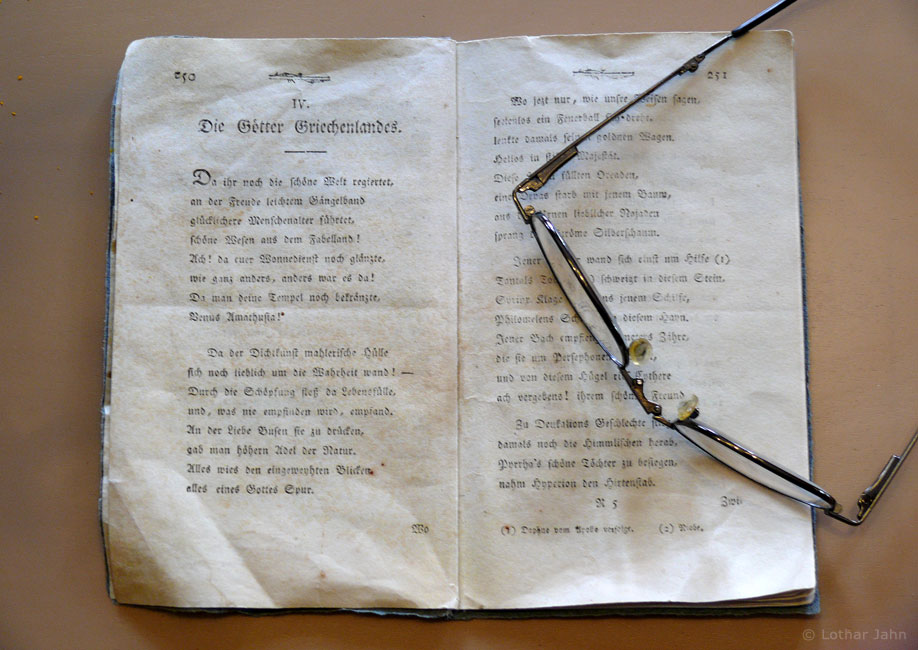 250
IV.
Die Götter Griechenlandes.
Da ihr noch die schöne Welt regiertet,
an der Freude leichtem Gängelband
glücklichere Menschenalter führtet,
schöne Wesen aus dem Fabelland!
Ach! da euer Wonnedienst noch glänzte,
wie ganz anders, anders war es da!
Da man deine Tempel noch bekränzte,
Venus Amathusia!
Da der Dichtkunst mahlerische Hülle
sich noch lieblich um die Wahrheit wand! —
Durch die Schöpfung floß da Lebensfülle,
und, was nie empfinden wird, empfand.
An der Liebe Busen sie zu drücken,
gab man höhern Adel der Natur.
Alles wies den eingeweyhten Blicken
alles eines Gottes Spur.
Wo
251
Wo jezt nur, wie unsre Weisen sagen,
seelenlos ein Feuerball sich dreht,
lenkte damals seinen goldnen Wagen,
Helios in Majestät.
Diese füllten Oreaden,
eine Dryas starb mit jenem Baum,
aus den lieblicher Najaden
sprang Ströme Silberschaum.
Jener wand sich einst um Hilfe (1)
Tantals schweigt in diesem Stein.
Syrinx Klage aus jenem Schilfe,
Philomelens diesem Hayn.
Jener Bach empfieng Zähre,
die sie um Persephone
und von diesem Hügel rief Cythere
ach vergebens! ihrem schönen Freund
Zu Deukalions Geschlechte
damals noch die Himmlischen herab,
Pyrrha's schöne Töchter zu besiegen,
nahm Hyperion den Hirtenstab.
R 5 Zwi-
(1) Daphne vom Apollo verfolgt. (2) Niobe.
© Lothar Jahn